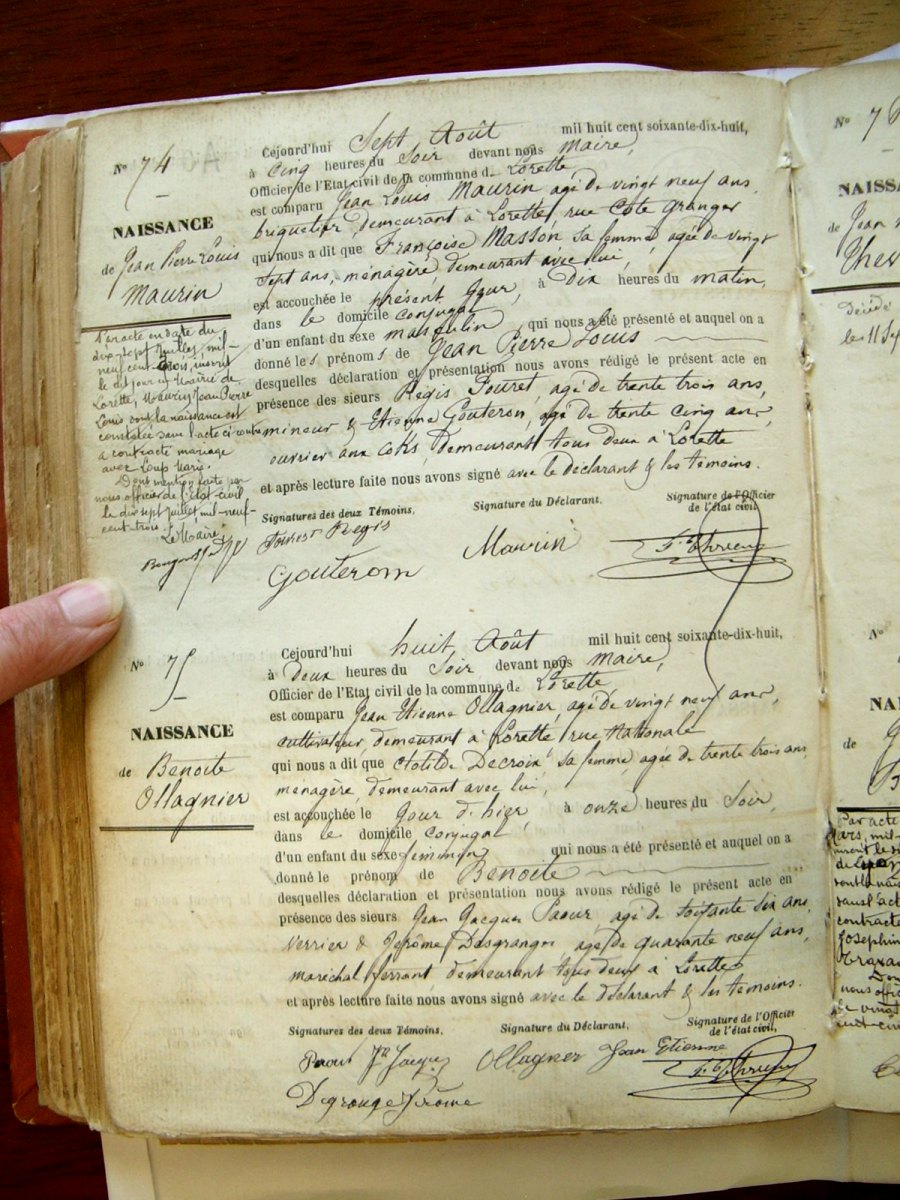 N° 74
NAISSANCE
de Jean Pierre Louis
Maurin
Par acte en date du
dix-sept Juillet, mil-
neuf cent trois, inscrit
le dit jour en Mairie de
Lorette, Maurin Jean Pierre
Louis dont la naissance est
constatée dans l'acte ci-contre
a contracté mariage
avec Loup Marie.
Dont mention faite par
nous officier de l'état-civil
le dix sept Juillet mil-neuf-
cent-trois.
Le Maire
Cejourd'hui Sept Août mil huit cent soixante-dix-huit,
à Cinq heures du Soir devant nous Maire,
Officier de l'Etat civil de la commune de Lorette,
est comparu Jean Louis Maurin agé de vingt neuf ans
briquetier, demeurant à Lorette, rue Côte Granger
qui nous a dit que Françoise Masson, sa femme, agée de vingt
sept ans, ménagère, demeurant avec lui,
est accouchée le présent Jour, à Dix heures du matin,
dans le domicile conjugal
d'un enfant du sexe masculin, qui nous a été présenté et auquel on a
donné les prénoms de Jean Pierre Louis
desquelles déclaration et présentation nous avons rédigé le présent acte en
présence des sieurs Régis Fouret, agé de trente trois ans,
mineur & Etienne Gouteron, agé de trente cinq ans,
ouvrier aux Coks, demeurant tous deux à Lorette
et après lecture faite nous avons signé avec le déclarant & les témoins.
Signatures des deux Témoins, Signature du Déclarant, Signature de l'Officier
de l'état civil,
Regis Maurin
Gouterom
N° 75
NAISSANCE
de Benoite
Ollagnier
Cejourd'hui huit Août mil huit cent soixante-dix-huit,
à Deux heures du Soir devant nous Maire,
Officier de l'Etat civil de la commune de Lorette
est comparu Jean Etienne Ollagnier, agé de vingt neuf ans,
cultivateur demeurant à Lorette, rue Nationale
qui nous a dit que Clotilde Decroix sa femme, agée de trente trois ans
ménagère, demeurant avec lui,
est accouchée le Jour d'hier, à onze heures du Soir,
dans le domicile conjugal
d'un enfant du sexe féminin qui nous a été présenté et auquel on a
donné le prénom de Benoite
desquelles déclaration et présentation nous avons rédigé le présent acte en
présence des sieurs Jean Jacques Paour agé de soixante six ans
Verrier & Jérôme Desgranges agé de quarante neuf ans,
maréchal ferrant demeurant tous deux à Lorette
et après lecture faite nous avons signé avec le déclarant & les témoins.
Signatures des deux Témoins, Signature du Déclarant, Signature de l'Officier
de l'état civil,
Paour Jn Jacques Ollagner Jean Etienne
Degrange Jérôme
N° 76
NAISSA
de Jean
Thev
Décédé
le 11 Sep
N°
NAI
de
Par acte
Mars, mil-
contracté
Josephin
nous offic